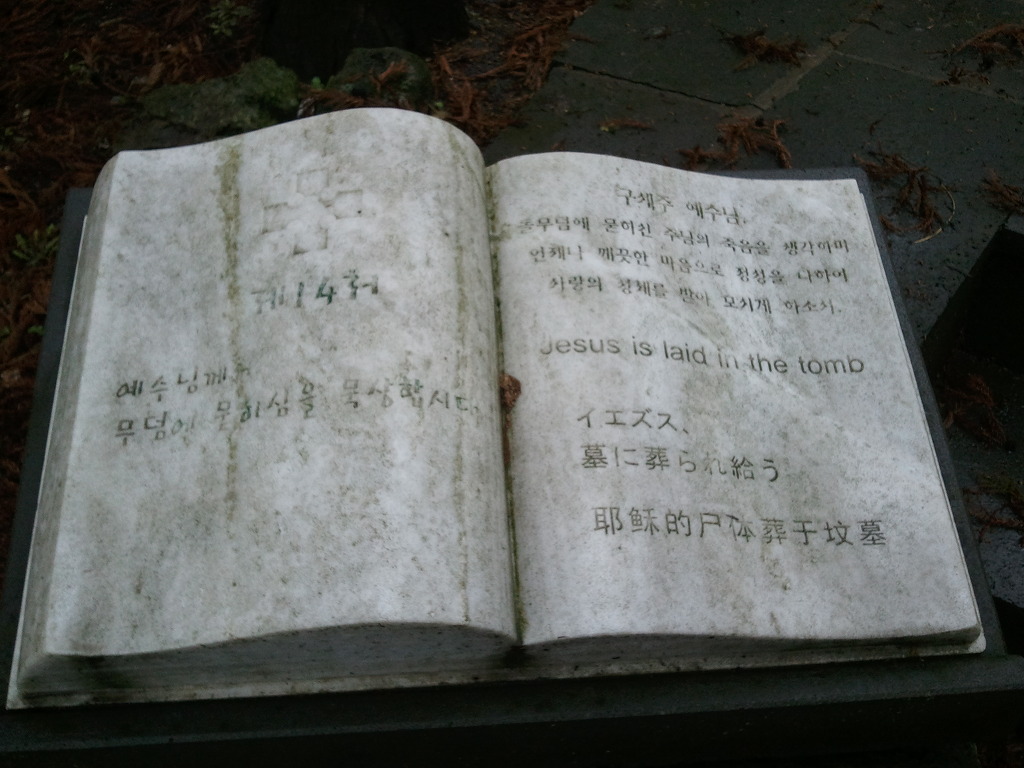 제14처
예수님께서
무덤에 묻히심을 묵상합시다.
구세주 예수님,
돌무덤에 묻히신 주님의 죽음을 생각하며
언제나 깨끗한 마음으로 정성을 다하여
사랑의 성체를 받아 모시게 하소서.
Jesus is laid in the tomb
イエズス、
墓に葬られ給う
耶稣的尸体葬于坟墓